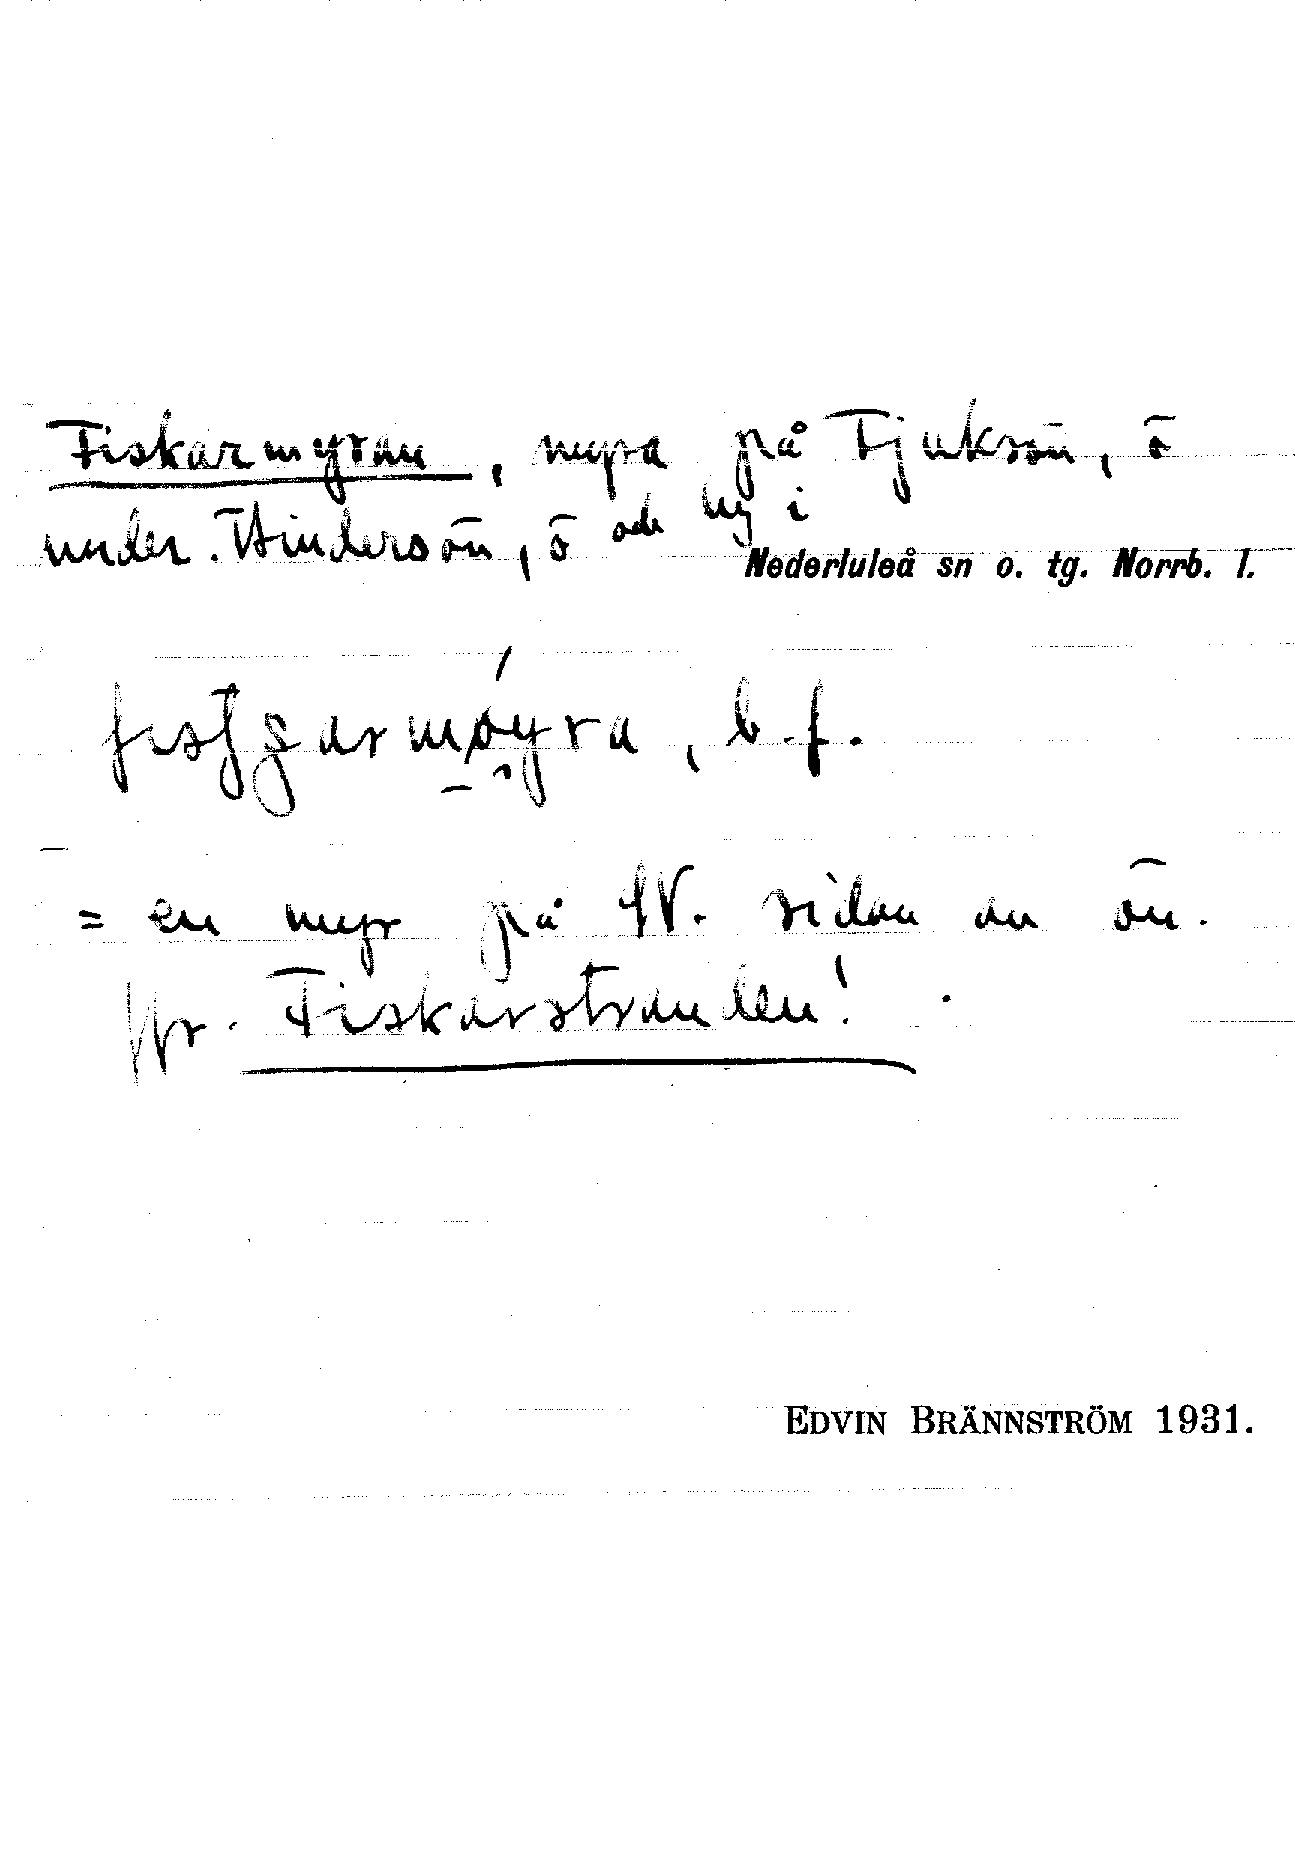 Fiskarmyran, myra på Tjuksön, ö
under Hindersön, ö och by i
Nederluleå sn o. tg. Norrb. l.
, b.f.
= en myr på SV. sidan av ön.
Jfr. Fiskarstranden!
EDVIN BRÄNNSTRÖM 1931.